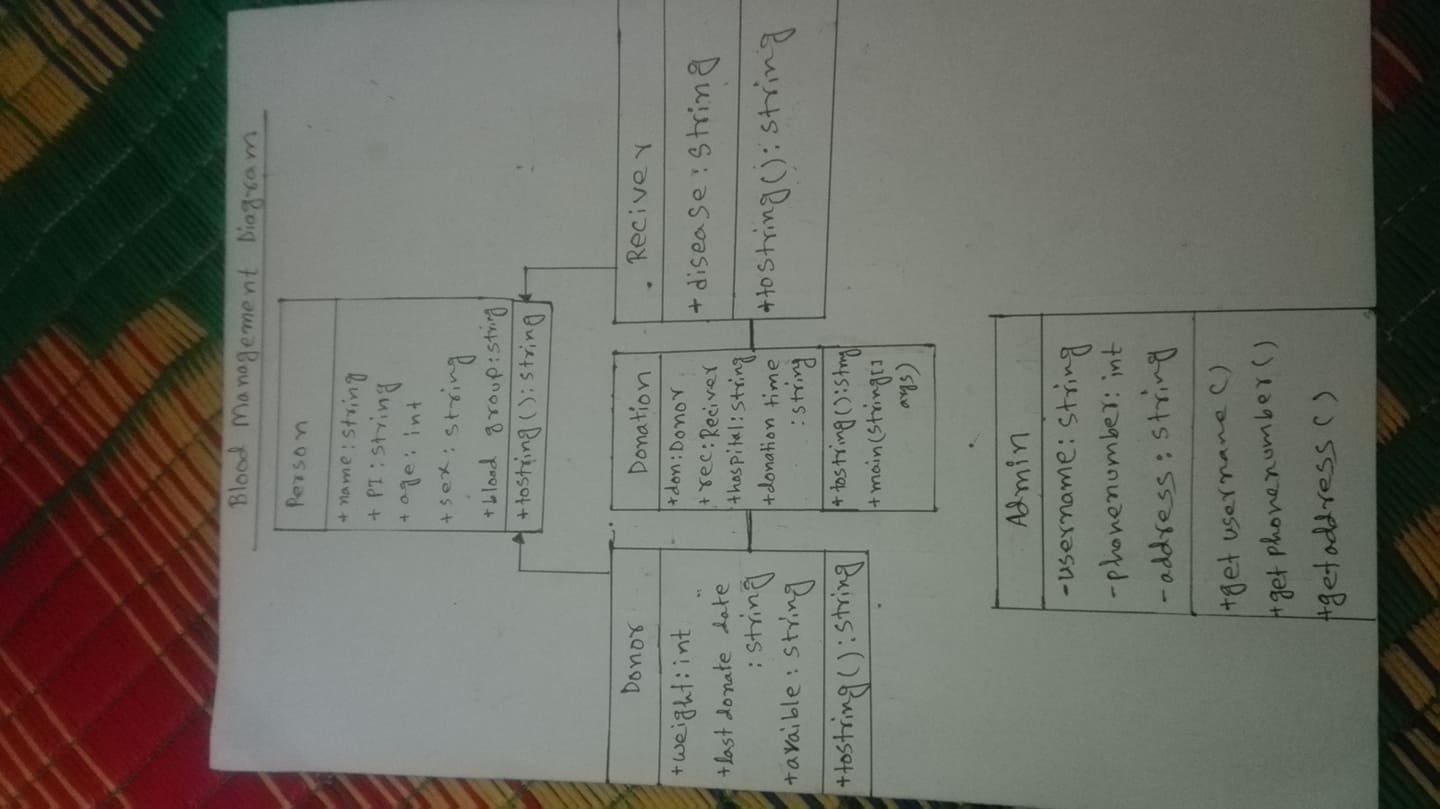 Blood Management Diagram
Person
+name:string
+ PI:string
+age:int
+sex:string
+blood group:string
+tostring():string
Donor
+weight:int
+last donate date
:string
+avaible:string
+tostring():string
Donation
+don:Donor
+rec:Reciver
+hospital:string
+donation time
:string
+tostring():string
+main(string[]
args)
Reciver
+disease:string
+tostring():string
Admin
-username:string
-phonenumber:int
-address:string
+get username()
+get phonenumber()
+getaddress()